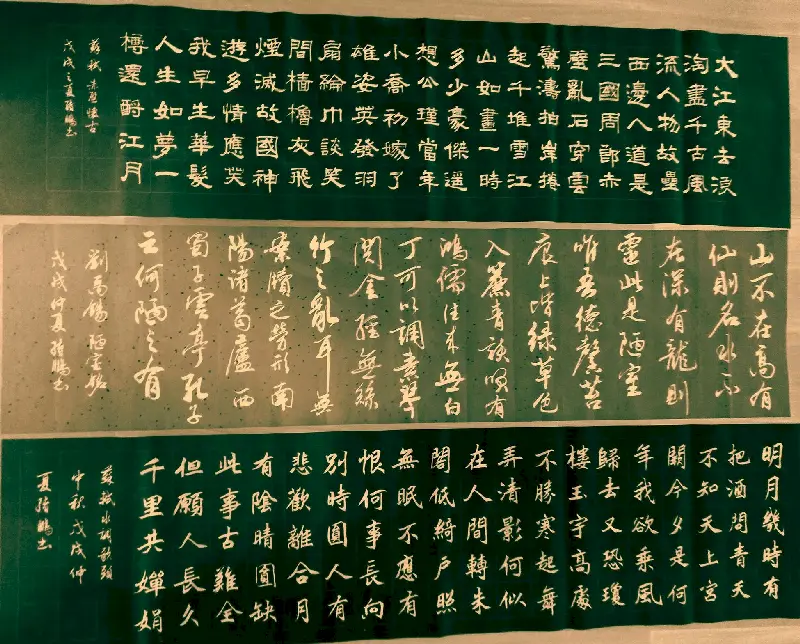 大江東去浪
淘盡千古風
流人物故壘
西邊人道是
三國周郎赤
壁亂石穿雲
驚濤拍岸捲
起千堆雪江
山如畫一時
多少豪傑遥
想公瑾當年
小喬初嫁了
雄姿英發羽
扇綸巾談笑
間檣櫓灰飛
煙滅故國神
遊多情應笑
我早生華髮
人生如夢一
樽還酹江月
蘇軾 赤壁懷古
戊戌之夏 鵬书
山不在高有
仙則名水不
在深有龍則
靈此是陋室
唯吾德馨苔
痕上階綠草色
入簾青談笑有
鴻儒往來無白
丁可以調素琴
閱金經無絲
竹之亂耳無
案牘之勞形南
陽諸葛廬西
蜀子雲亭孔子
云何陋之有
劉禹錫陋室銘
戊戌仲夏 鵬书
明月幾時有
把酒問青天
不知天上宮
闕今夕是何
年我欲乘風
歸去又恐瓊
樓玉宇高處
不勝寒起舞
弄清影何似
在人間轉朱
閣低綺户照
無眠不應有
恨何事長向
别時圓人有
悲歡離合月
有陰晴圓缺
此事古難全
但願人長久
千里共嬋娟
蘇軾水調歌頭
中秋戊戌仲
夏 鵬书